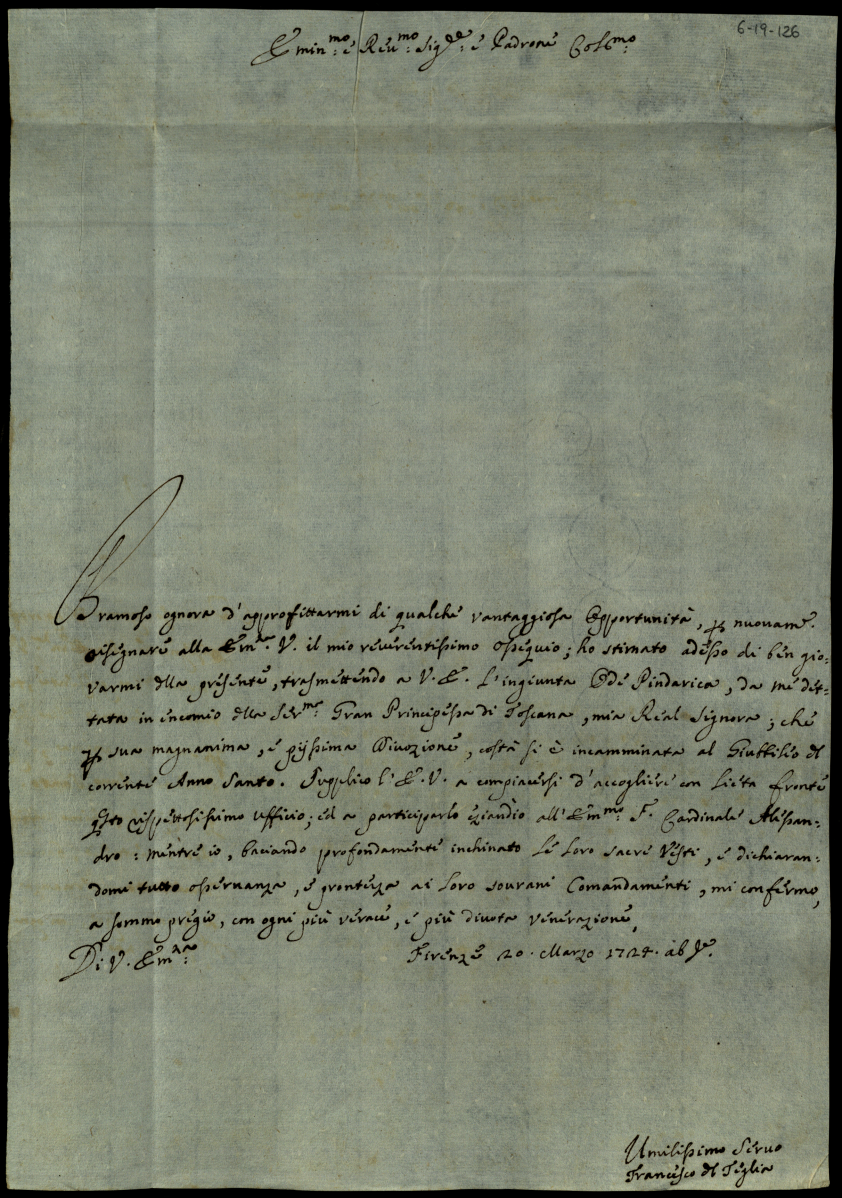 6-19-126
Emin.mo e Reu.mo Sig.re e Padrone Col.mo
Bramoso ognora d'approfittarmi di qualche vantaggiosa Opportunità, p nuouam.e
risegnare alla Em.za V. il mio reverentissimo ossequio; ho stimato adesso di ben gio-
varmi dlla presente, trasmettendo a V. E. L'ingiunta Ode Pindarica, da me det-
tata in encomio dlla Ser.ma Gran Principessa di Toscana, mia Real Signora; che
p sua magnanima, e pijssima Divozione, costà si è incamminata al Giubbileo dl
corrente Anno Santo. Supplico l'E. V. a compiacersi d'accogliere con lieta fronte
qsto rispettosissimo ufficio; ed a participarlo eziandio all'Em.mo S. Cardinale Alessan-
dro: mentre io, baciando profondamente inchinato le loro sacre Vesti, e dichiaran-
domi tutto osseruanza, e prontezza ai loro sourani Comandamenti, mi confermo,
a sommo pregio, con ogni più verace, e più divota venerazione,
Di V. Em.za
Firenze 20. Marzo 1724. ab I.e
Umilissimo Seruo
Francesco dl Teglia